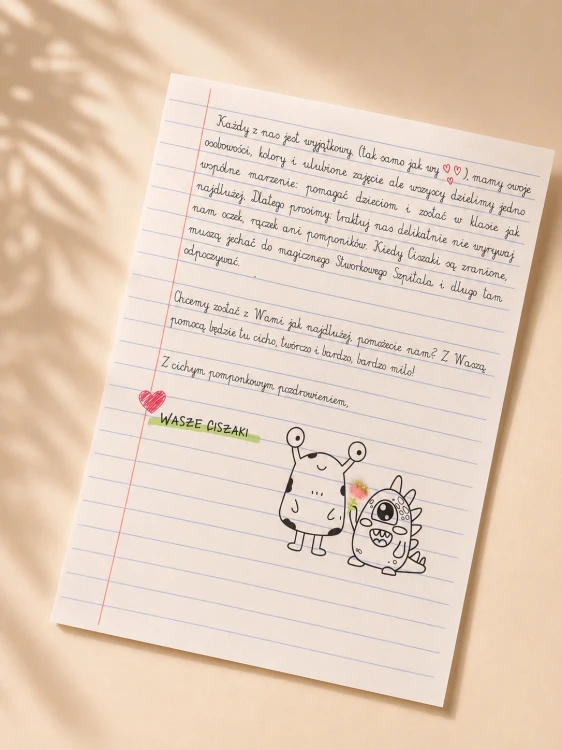 Każdy z nas jest wyjątkowy. (tak samo jak wy ♡♡), mamy swoje
osobowości, kolory i ulubione zajęcie ale wszyscy dzielimy jedno
wspólne marzenie: pomagać dzieciom i zostać w klasie jak
najdłużej. Dlatego prosimy: traktuj nas delikatnie nie wyrywaj
nam oczek, rączek ani pomponików. Kiedy Ciszaki są zranione,
muszą jechać do magicznego Stworkowego Szpitala i długo tam
odpoczywać.
Chcemy zostać z Wami jak najdłużej, pomożecie nam? Z Waszą
pomocą będzie tu cicho, twórczo i bardzo, bardzo miło!
Z cichym pomponkowym pozdrowieniem,
WASZE CISZAKI